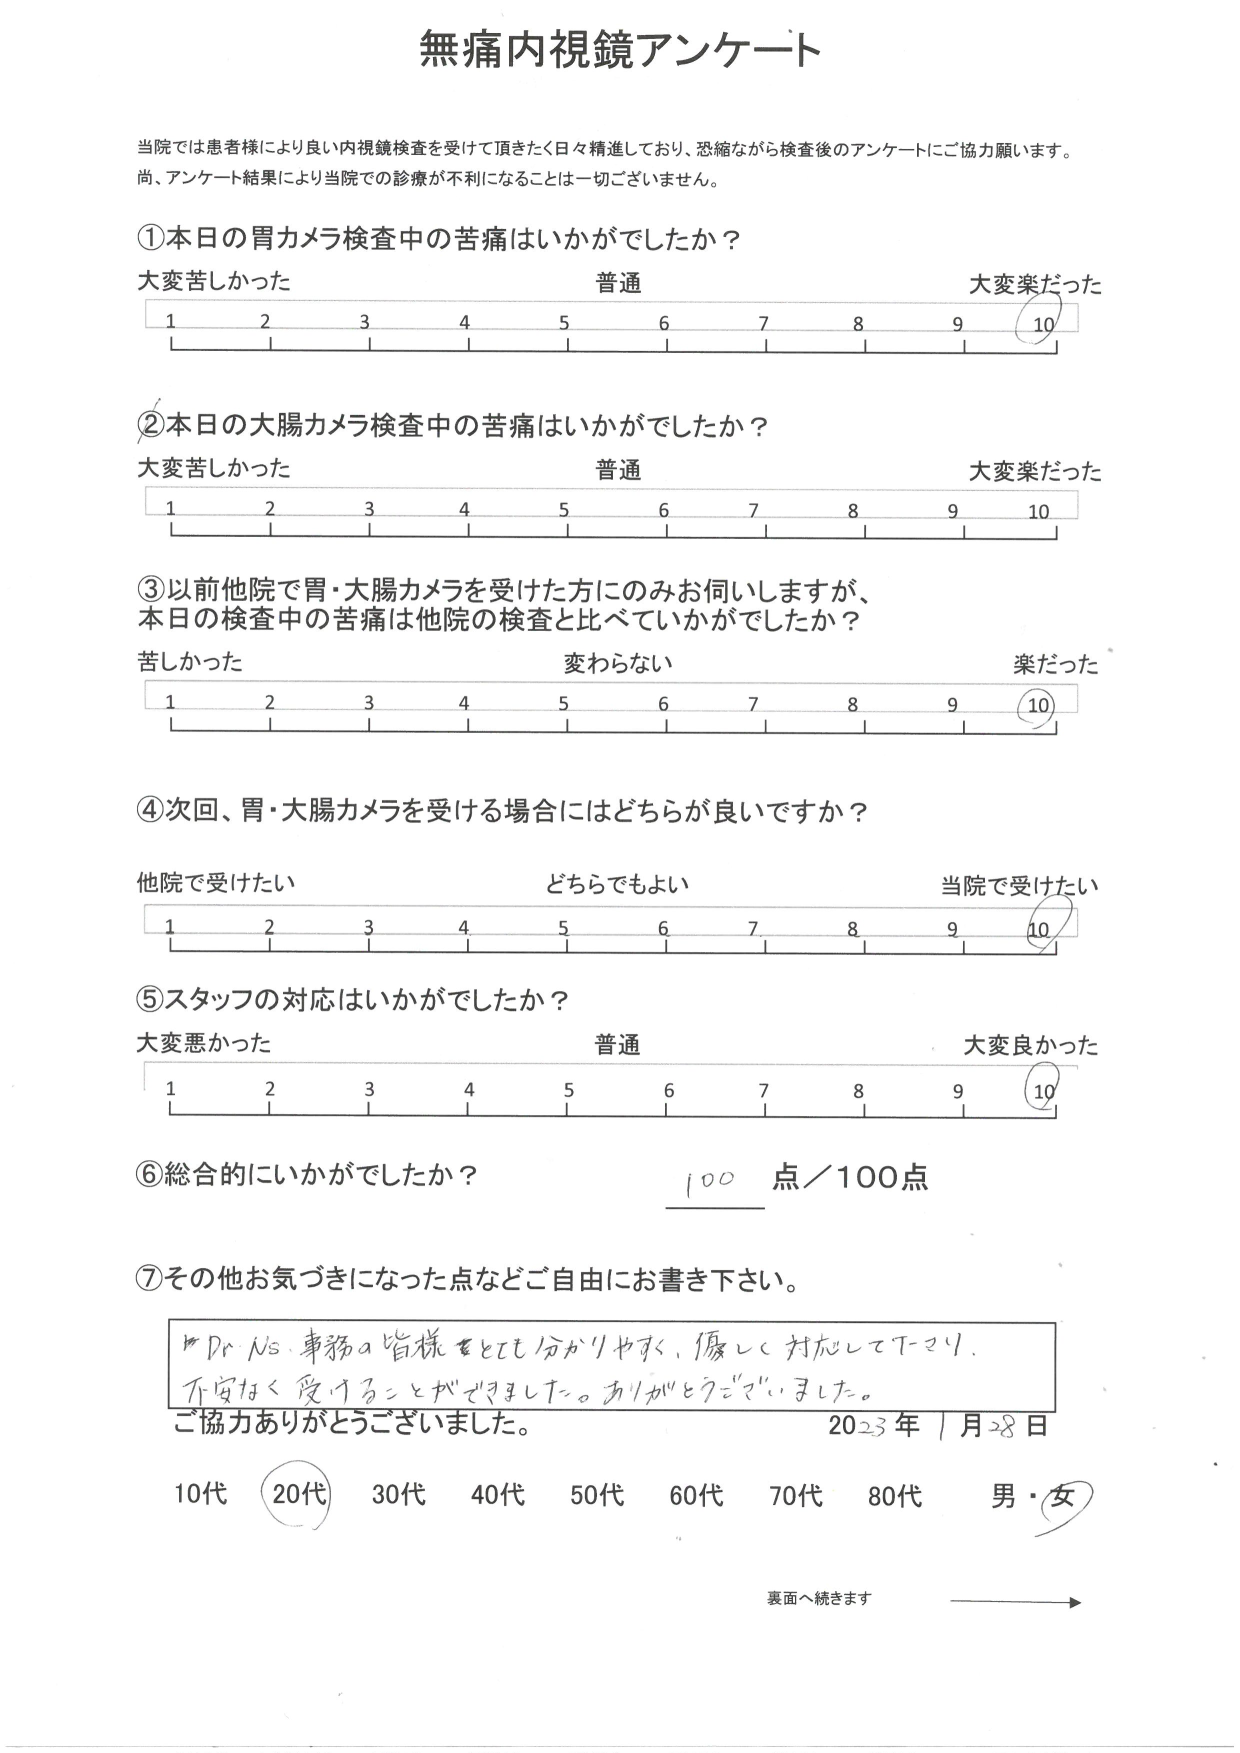 無痛内視鏡アンケート
当院では患者様により良い内視鏡検査を受けて頂きたく日々精進しており、恐縮ながら検査後のアンケートにご協力願います。
尚、アンケート結果により当院での診療が不利になることは一切ございません。
①本日の胃カメラ検査中の苦痛はいかがでしたか？
大変苦しかった 普通 大変楽だった
1 2 3 4 5 6 7 8 9 10
②本日の大腸カメラ検査中の苦痛はいかがでしたか？
大変苦しかった 普通 大変楽だった
1 2 3 4 5 6 7 8 9 10
③以前他院で胃・大腸カメラを受けた方にのみお伺いしますが、
本日の検査中の苦痛は他院の検査と比べていかがでしたか？
苦しかった 変わらない 楽だった
1 2 3 4 5 6 7 8 9 10
④次回、胃・大腸カメラを受ける場合にはどちらが良いですか？
他院で受けたい どちらでもよい 当院で受けたい
1 2 3 4 5 6 7 8 9 10
⑤スタッフの対応はいかがでしたか？
大変悪かった 普通 大変良かった
1 2 3 4 5 6 7 8 9 10
⑥総合的にいかがでしたか？ 100 点／100点
⑦その他お気づきになった点などご自由にお書き下さい。
Dr. Ns. 事務の皆様とても分かりやすく、優しく対応して下さり、
不安なく受けることができました。ありがとうございました。
ご協力ありがとうございました。 2023年 1月28日
10代 20代 30代 40代 50代 60代 70代 80代 男・女
裏面へ続きます